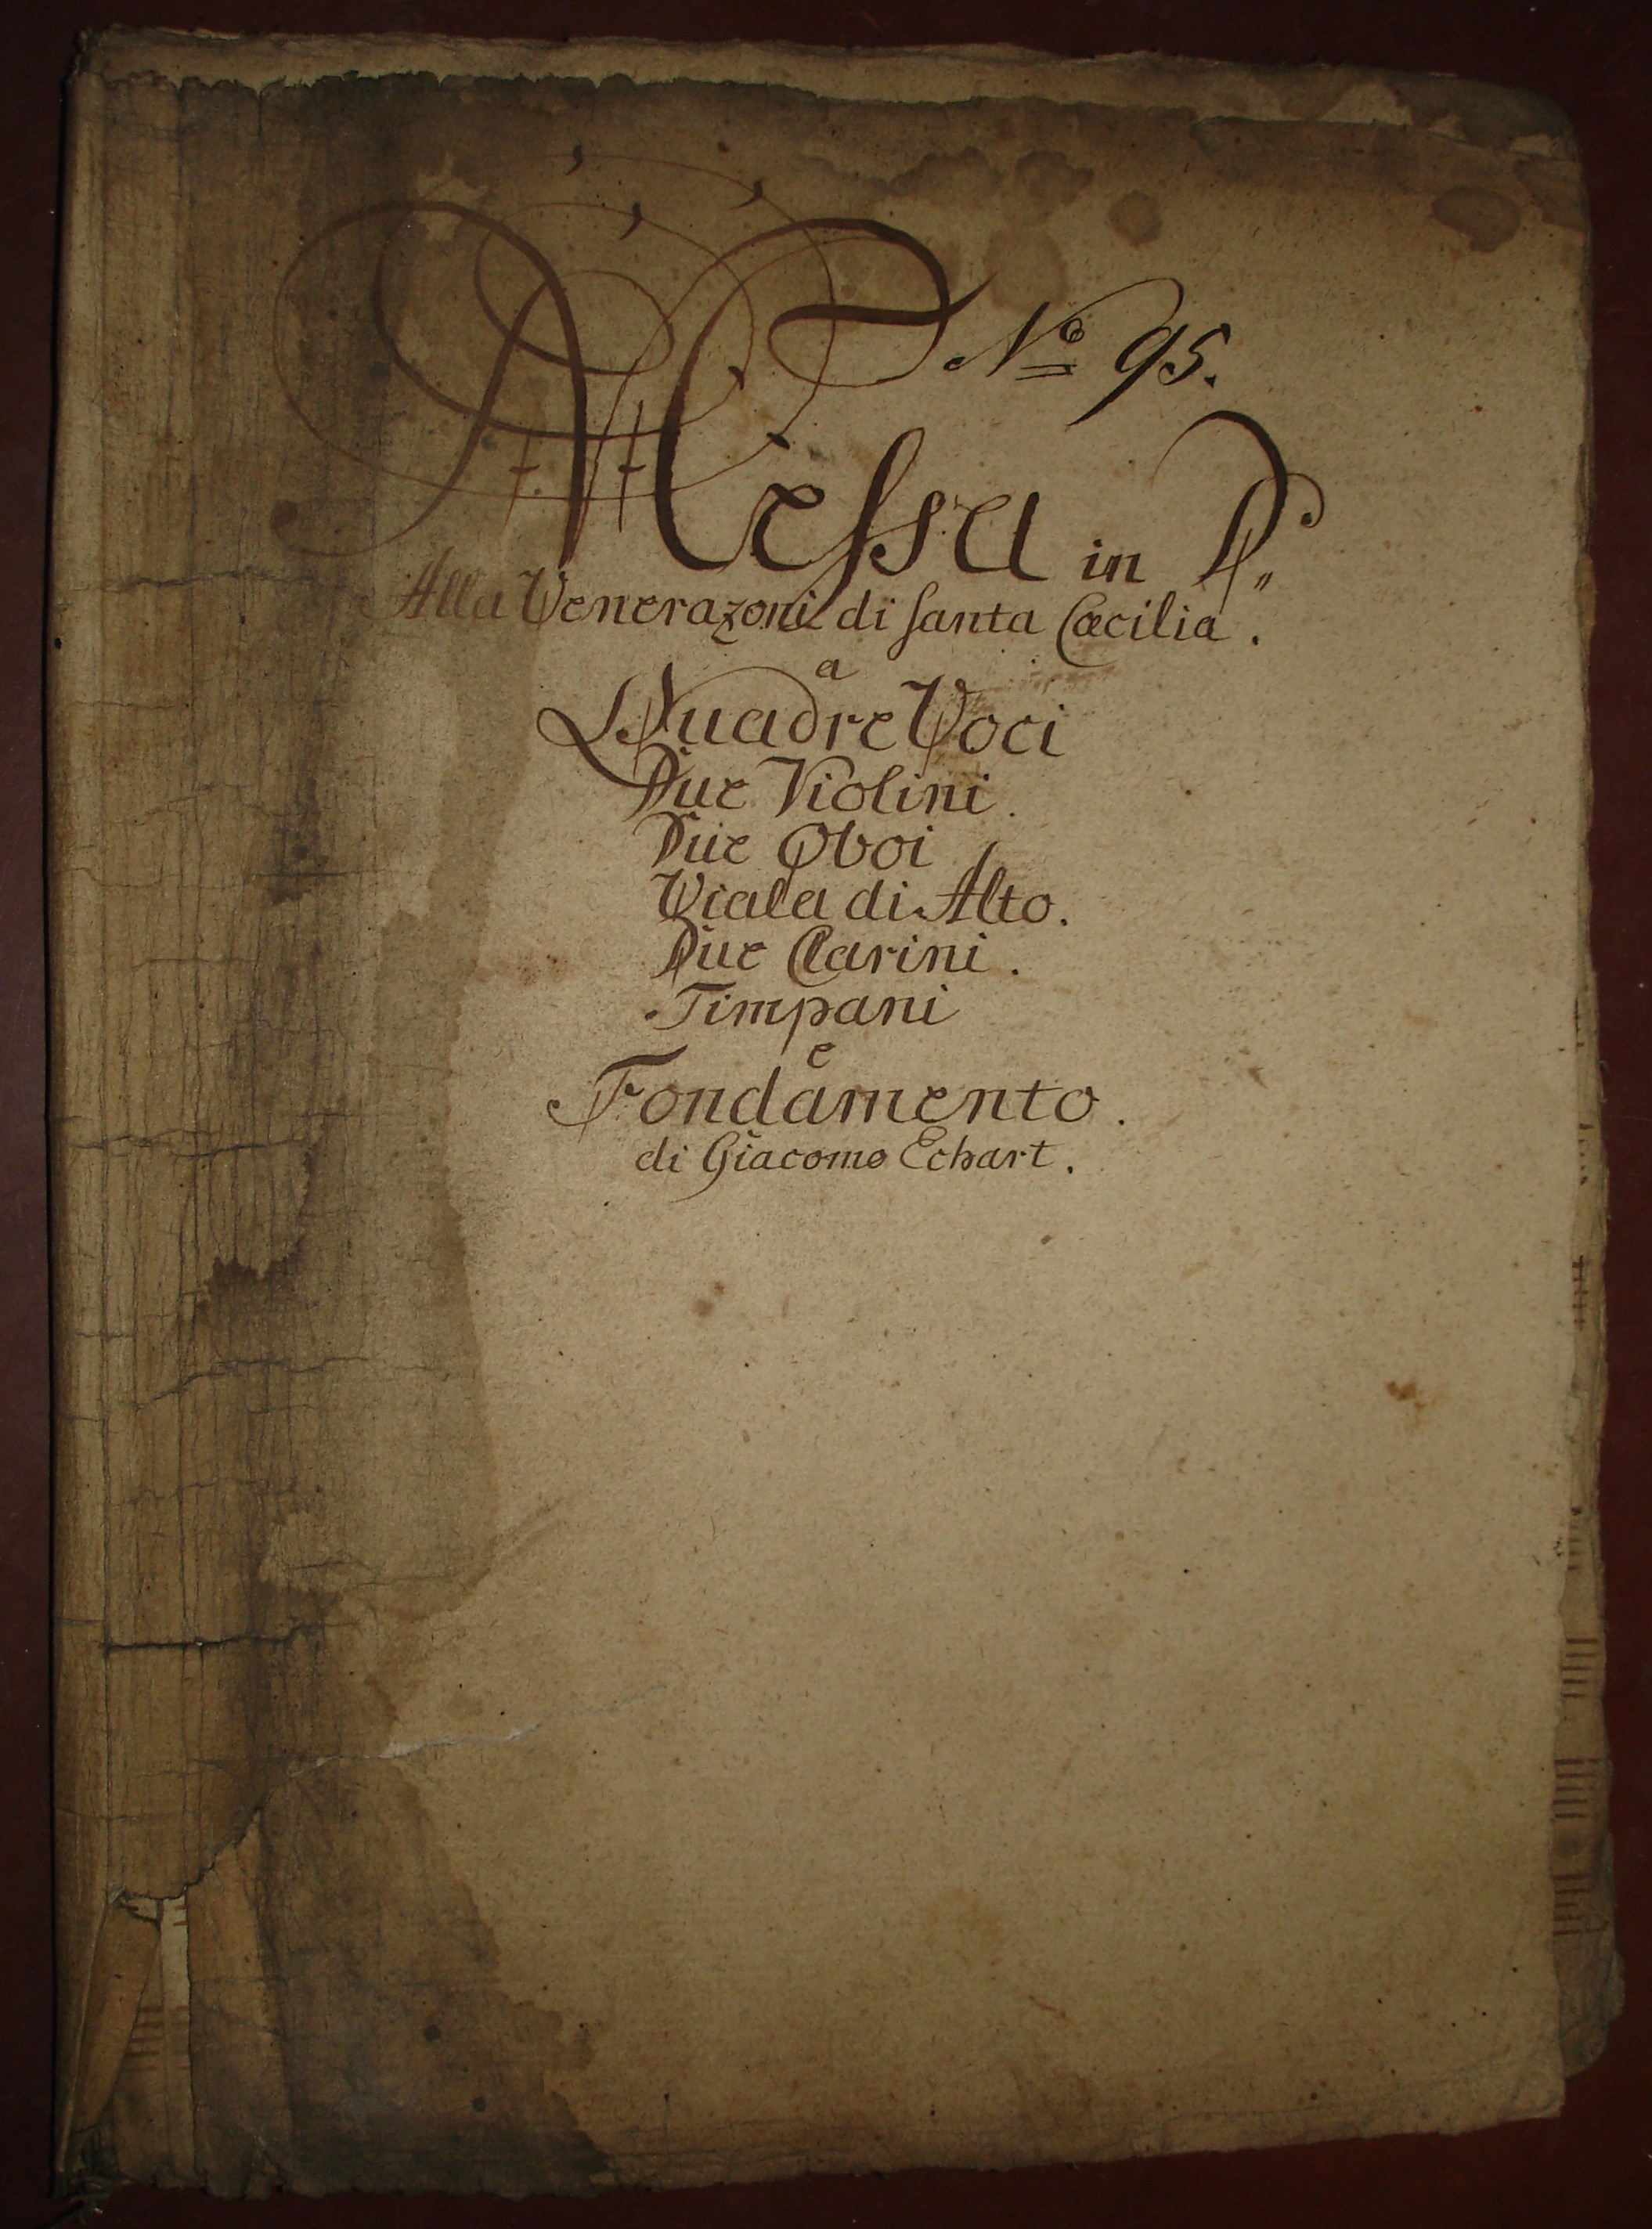 No 95.
Messa in D.
Alla Venerazoni di Santa Cæcilia.
a
Quadre Voci
Due Violini.
Due Oboi
Viola di Alto.
Due Clarini.
Timpani
e
Fondamento.
di Giacomo Echart.